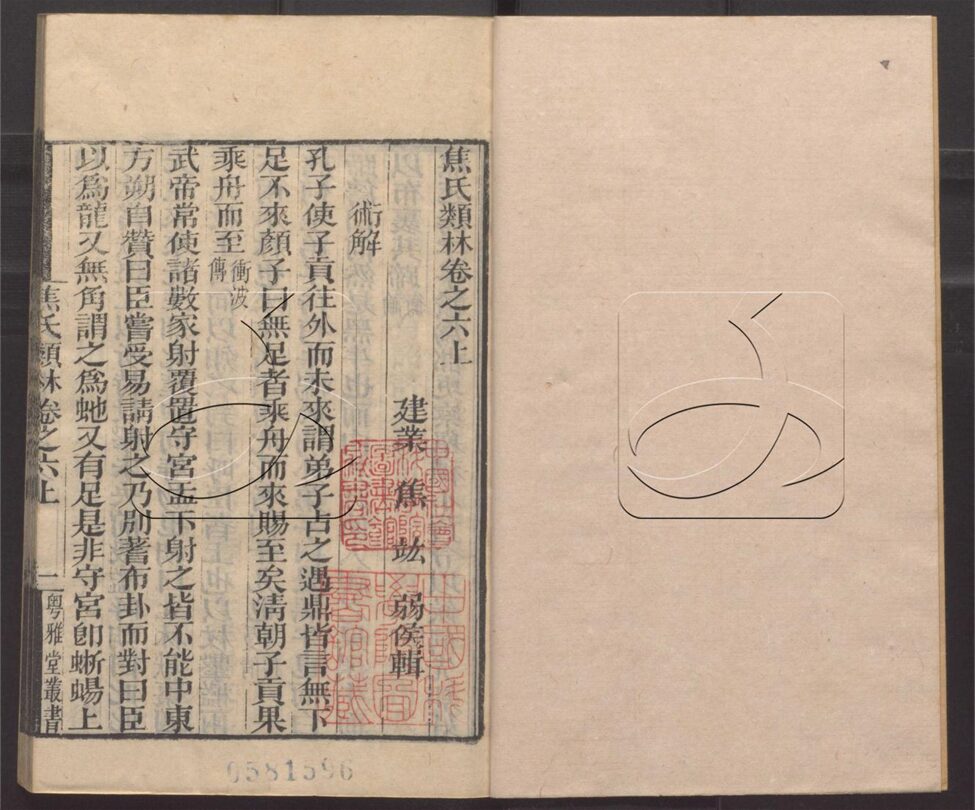 焦氏類林卷之六上
建業 焦竑 弱侯輯
術解
孔子使子貢往外而未來謂弟子占之遇鼎皆言無下
足不來顏子曰無足者乘舟而來賜至矣清朝子貢果
乘舟而至衝波傳
武帝常使諸數家射覆置守宮盂下射之皆不能中東
方朔自贊曰臣嘗受易請射之乃別蓍布卦而對曰臣
以爲龍又無角謂之爲虵又有足是非守宮卽蜥蜴上
焦氏類林卷之六上 一 粵雅堂叢書
0581596